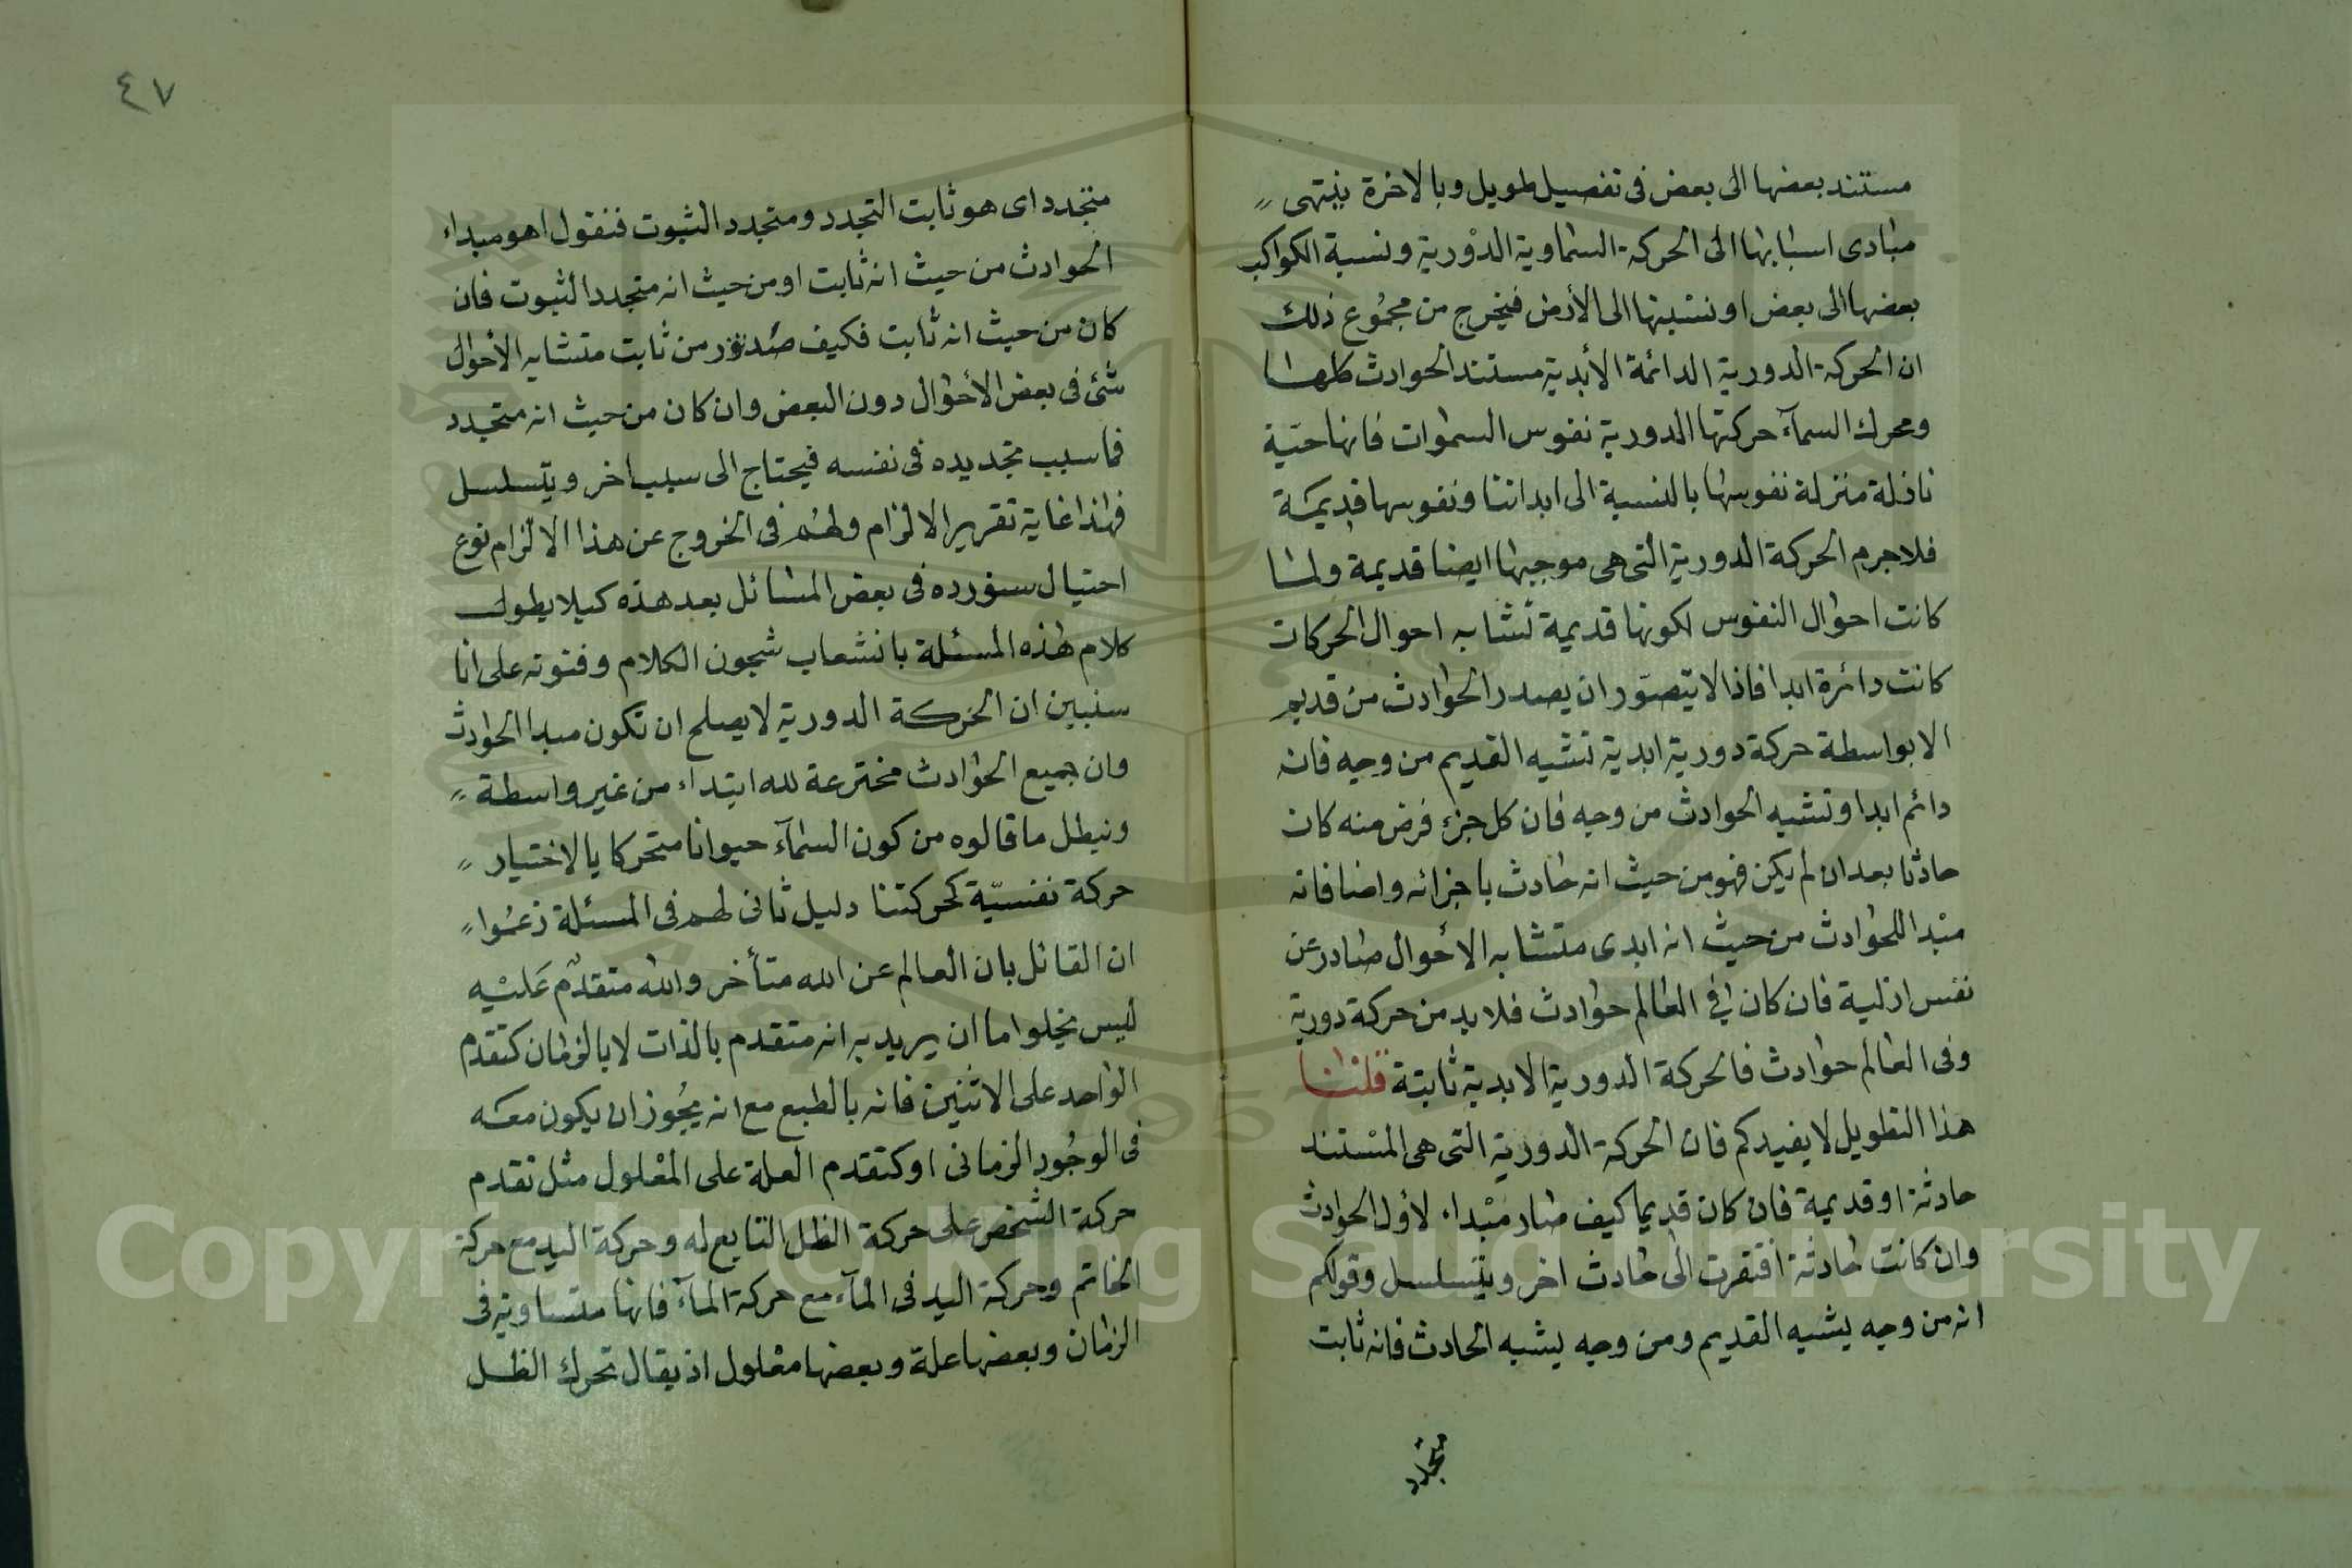 مستند بعضها الى بعض فى تفصيل طويل وبالاخرة ينتهى
مبادى اسبابها الى الحركة السماوية الدورية ونسبة الكواكب
بعضها الى بعض او نسبتها الى الأرض فيخرج من مجموع ذلك
ان الحركة الدورية الدائمة الأبدية مستند الحوادث كلها
ومحرك السمآء حركتها الدورية نفوس السموات فانها حيّة
نازلة منزلة نفوسها بالنسبة الى ابداننا ونفوسها قديمة
فلا جرم الحركة الدورية التى هى موجبها ايضا قديمة ولما
كانت احوال النفوس لكونها قديمة تشابه احوال الحركات
كانت دائرة ابدا فاذا لا يتصوّر ان يصدر الحوادث من قديم
الا بواسطة حركة دورية ابدية تشبه القديم من وجه فانه
دائم ابدا وتشبه الحوادث من وجه فان كل جزء فرض منه كان
حادثا بعد ان لم يكن فهو من حيث انه حادث باجزائه واضافاته
مبدا للحوادث من حيث انه ابدى متشابه الأحوال صادر عن
نفس ازلية فان كان في العالم حوادث فلا بد من حركة دورية
وفى العالم حوادث فالحركة الدورية الابدية ثابتة قلنا
هذا التطويل لا يفيدكم فان الحركة الدورية التى هى المستند
حادثة او قديمة فان كان قديما كيف صار مبداء لأول الحوادث
وان كانت حادثة افتقرت الى حادث اخر ويتسلسل وقولكم
انه من وجه يشبه القديم ومن وجه يشبه الحادث فانه ثابت
متجدد
٤٧
متجدد اى هو ثابت التجدد ومتجدد الثبوت فنقول اهو مبداء
الحوادث من حيث انه ثابت او من حيث انه متجدد الثبوت فان
كان من حيث انه ثابت فكيف صدر من ثابت متشابه الأحوال
شئ فى بعض الأحوال دون البعض وان كان من حيث انه متجدد
فما سبب تجديده فى نفسه فيحتاج الى سبب اخر ويتسلسل
فهذا غاية تقرير الالزام ولهم فى الخروج عن هذا الالزام نوع
احتيال سنورده فى بعض المسائل بعد هذه كيلا يطول
كلام هذه المسئلة بانشعاب شجون الكلام وفنونه على انا
سنبين ان الحركة الدورية لا يصلح ان تكون مبدا الحوادث
وان جميع الحوادث مخترعة لله ابتداء من غير واسطة
ونبطل ما قالوه من كون السمآء حيوانا متحركا بالاختيار
حركة نفسيّة كحركتنا دليل ثانى لهم فى المسئلة زعموا
ان القائل بان العالم عن الله متأخر والله متقدم عليه
ليس يخلوا ما ان يريد به انه متقدم بالذات لا بالزمان كتقدم
الواحد على الاثنين فانه بالطبع مع انه يجوز ان يكون معه
فى الوجود الزمانى او كتقدم العلة على المعلول مثل تقدم
حركة الشخص على حركة الظل التابع له وحركة اليد مع حركة
الخاتم وحركة اليد فى المآء مع حركة المآء فانها متساوية فى
الزمان وبعضها علة وبعضها معلول اذ يقال تحرك الظل
Copyright © King Saud University